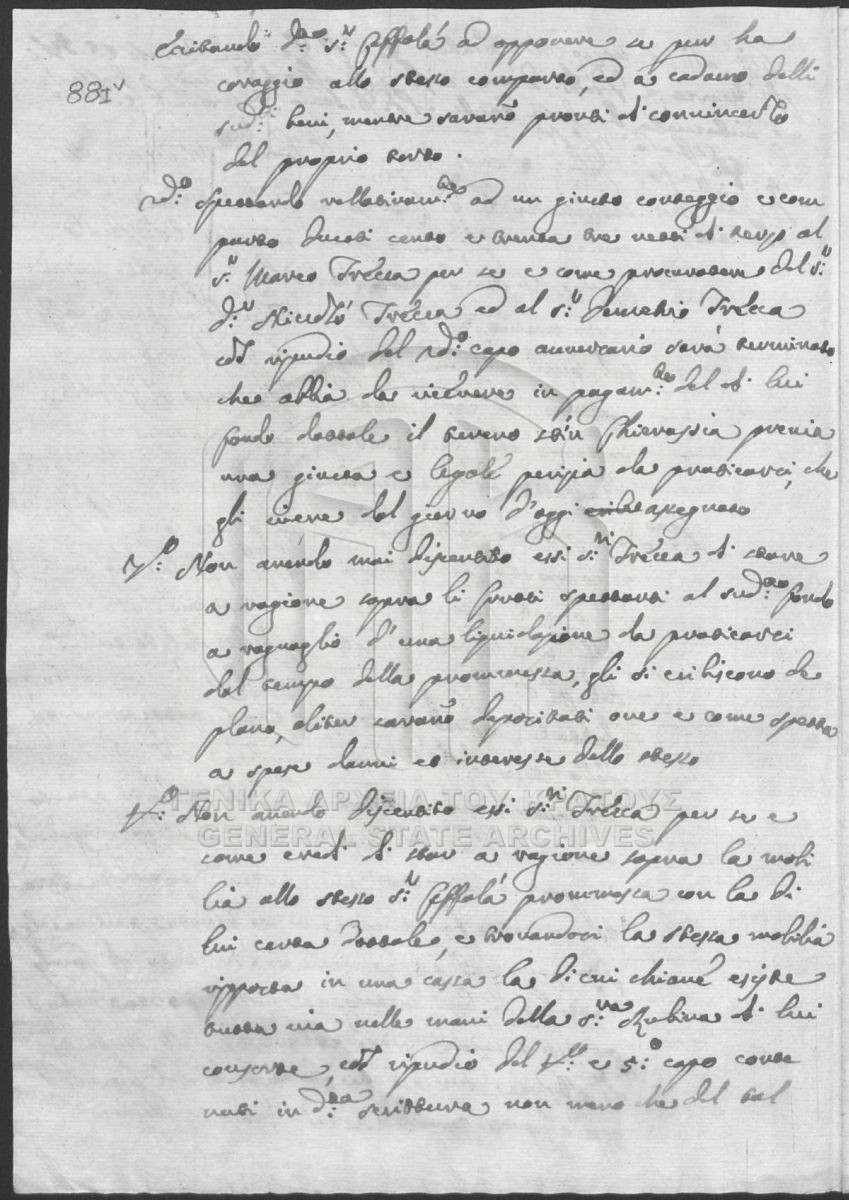 881v
Eccitando d:to s:r Ceffalà ad opponere se pur ha
coraggio allo stesso comparso, ed à cadauno delli
sud:i beni, mentre saranò pronti di convincerlo
del proprio torto.
2d:o Spettando rellativam:te ad un giusto conteggio e com
parto ducati cento e trenta tre netti di terzo al
s:r Marco Trècca per se e come procuratore del s:r
d:r Niccolò Trècca ed al s:r Demetrio Trècca
col ripudio del 2d:o capo avversario sarà terminato
che abbia da ricevere in pagam:to del di lui
fondo dottale il tereno Chierassia previa
una giusta e legale perizia da praticarsi, che
gli viene dal giorno d'oggi assegnato
3:o Non avendo mai dissentito essi s:ri Trècca di stare
a ragione sopra li frutti spettanti al sud:to fondo
a raguaglio d'una liquidazione da praticarsi
dal tempo della prommessa, gli si esibiscono de
plano, aliter saranò depositati ove e come spetta
a spese danni et interesse dello stesso
ΓΕΝΙΚΑ ΑΡΧΕΙΑ ΤΟΥ ΚΡΑΤΟΥΣ
GENERAL STATE ARCHIVES
4:o Non avendo dissentito essi s:ri Trècca per se e
come eredi di star a ragione sopra la mobi
lia allo stesso s:r Ceffalà prommessa con la di
lui carta dottale, e trovandosi la stessa mobilia
riposta in una cassa la di cui chiave esiste
tutta via nelle mani della s:ra Rubina di lui
consorte, col ripudio del 4:to e 5:o capo conte
nuti in d:ta scrittura non meno che del tal